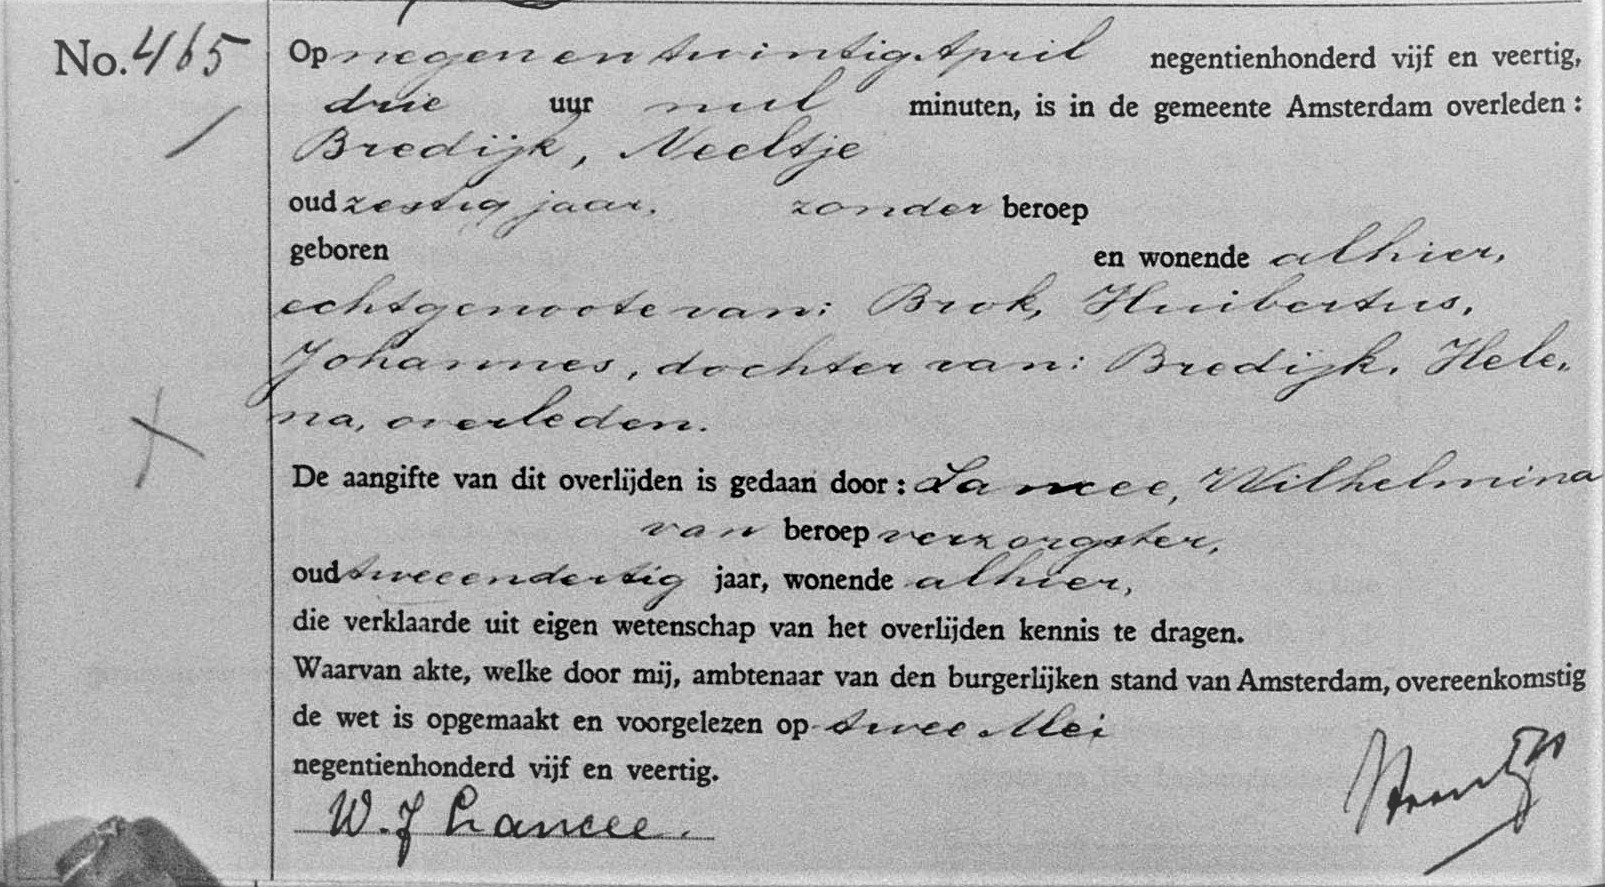 No. 465
Op negen en twintig April negentienhonderd vijf en veertig,
drie uur nul minuten, is in de gemeente Amsterdam overleden:
Bredijk, Neeltje
oud zestig jaar, zonder beroep
geboren en wonende alhier,
echtgenoote van: Brok, Huibertus,
Johannes, dochter van: Bredijk, Hele„
na, overleden.
De aangifte van dit overlijden is gedaan door: Lamcee, Wilhelmina
van beroep verzorgster,
oud tweeendertig jaar, wonende alhier,
die verklaarde uit eigen wetenschap van het overlijden kennis te dragen.
Waarvan akte, welke door mij, ambtenaar van den burgerlijken stand van Amsterdam, overeenkomstig
de wet is opgemaakt en voorgelezen op twee Mei
negentienhonderd vijf en veertig.
W. J Lamcee.